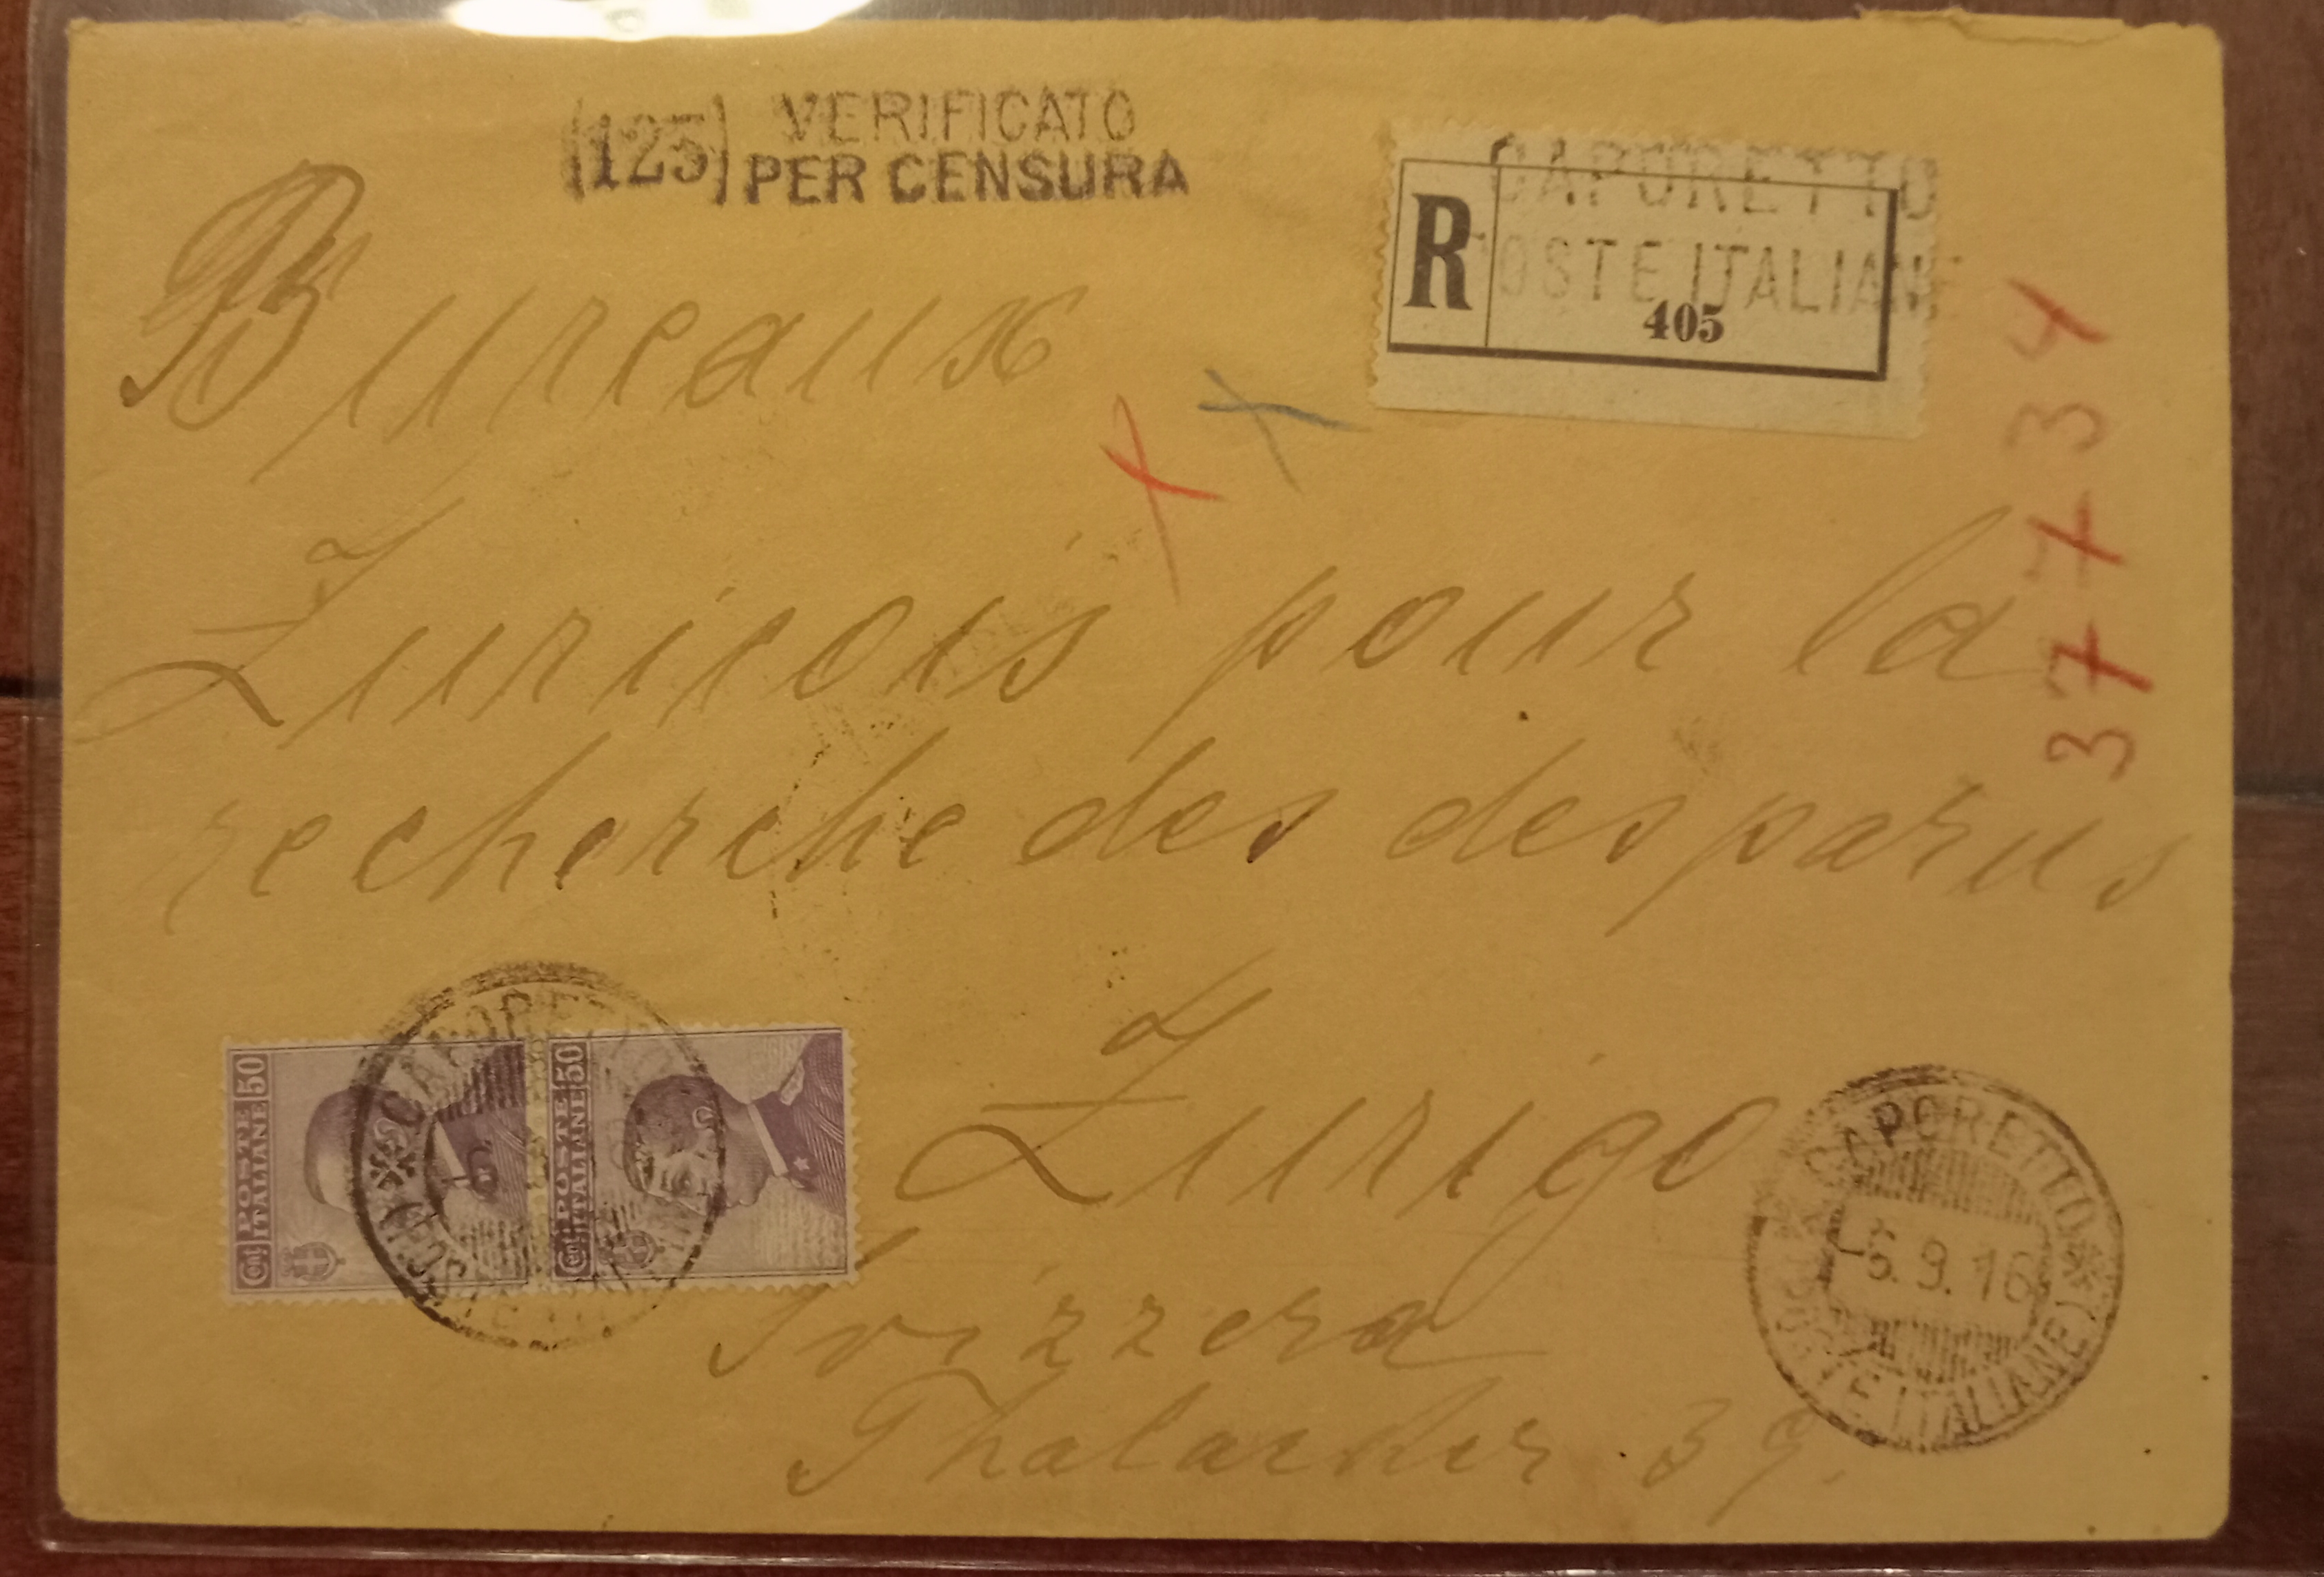 (125) VERIFICATO
PER CENSURA
CAPORETTO
POSTE ITALIANE
R
405
37734
Bureaux
Zuricois pour la
recherche des desparus
Zurigo
Svizzera
Thalacker 39.
Cent POSTE ITALIANE 50
Cent POSTE ITALIANE 50
CAPORETTO
CAPORETTO
(POSTE ITALIANE)
5.9.16